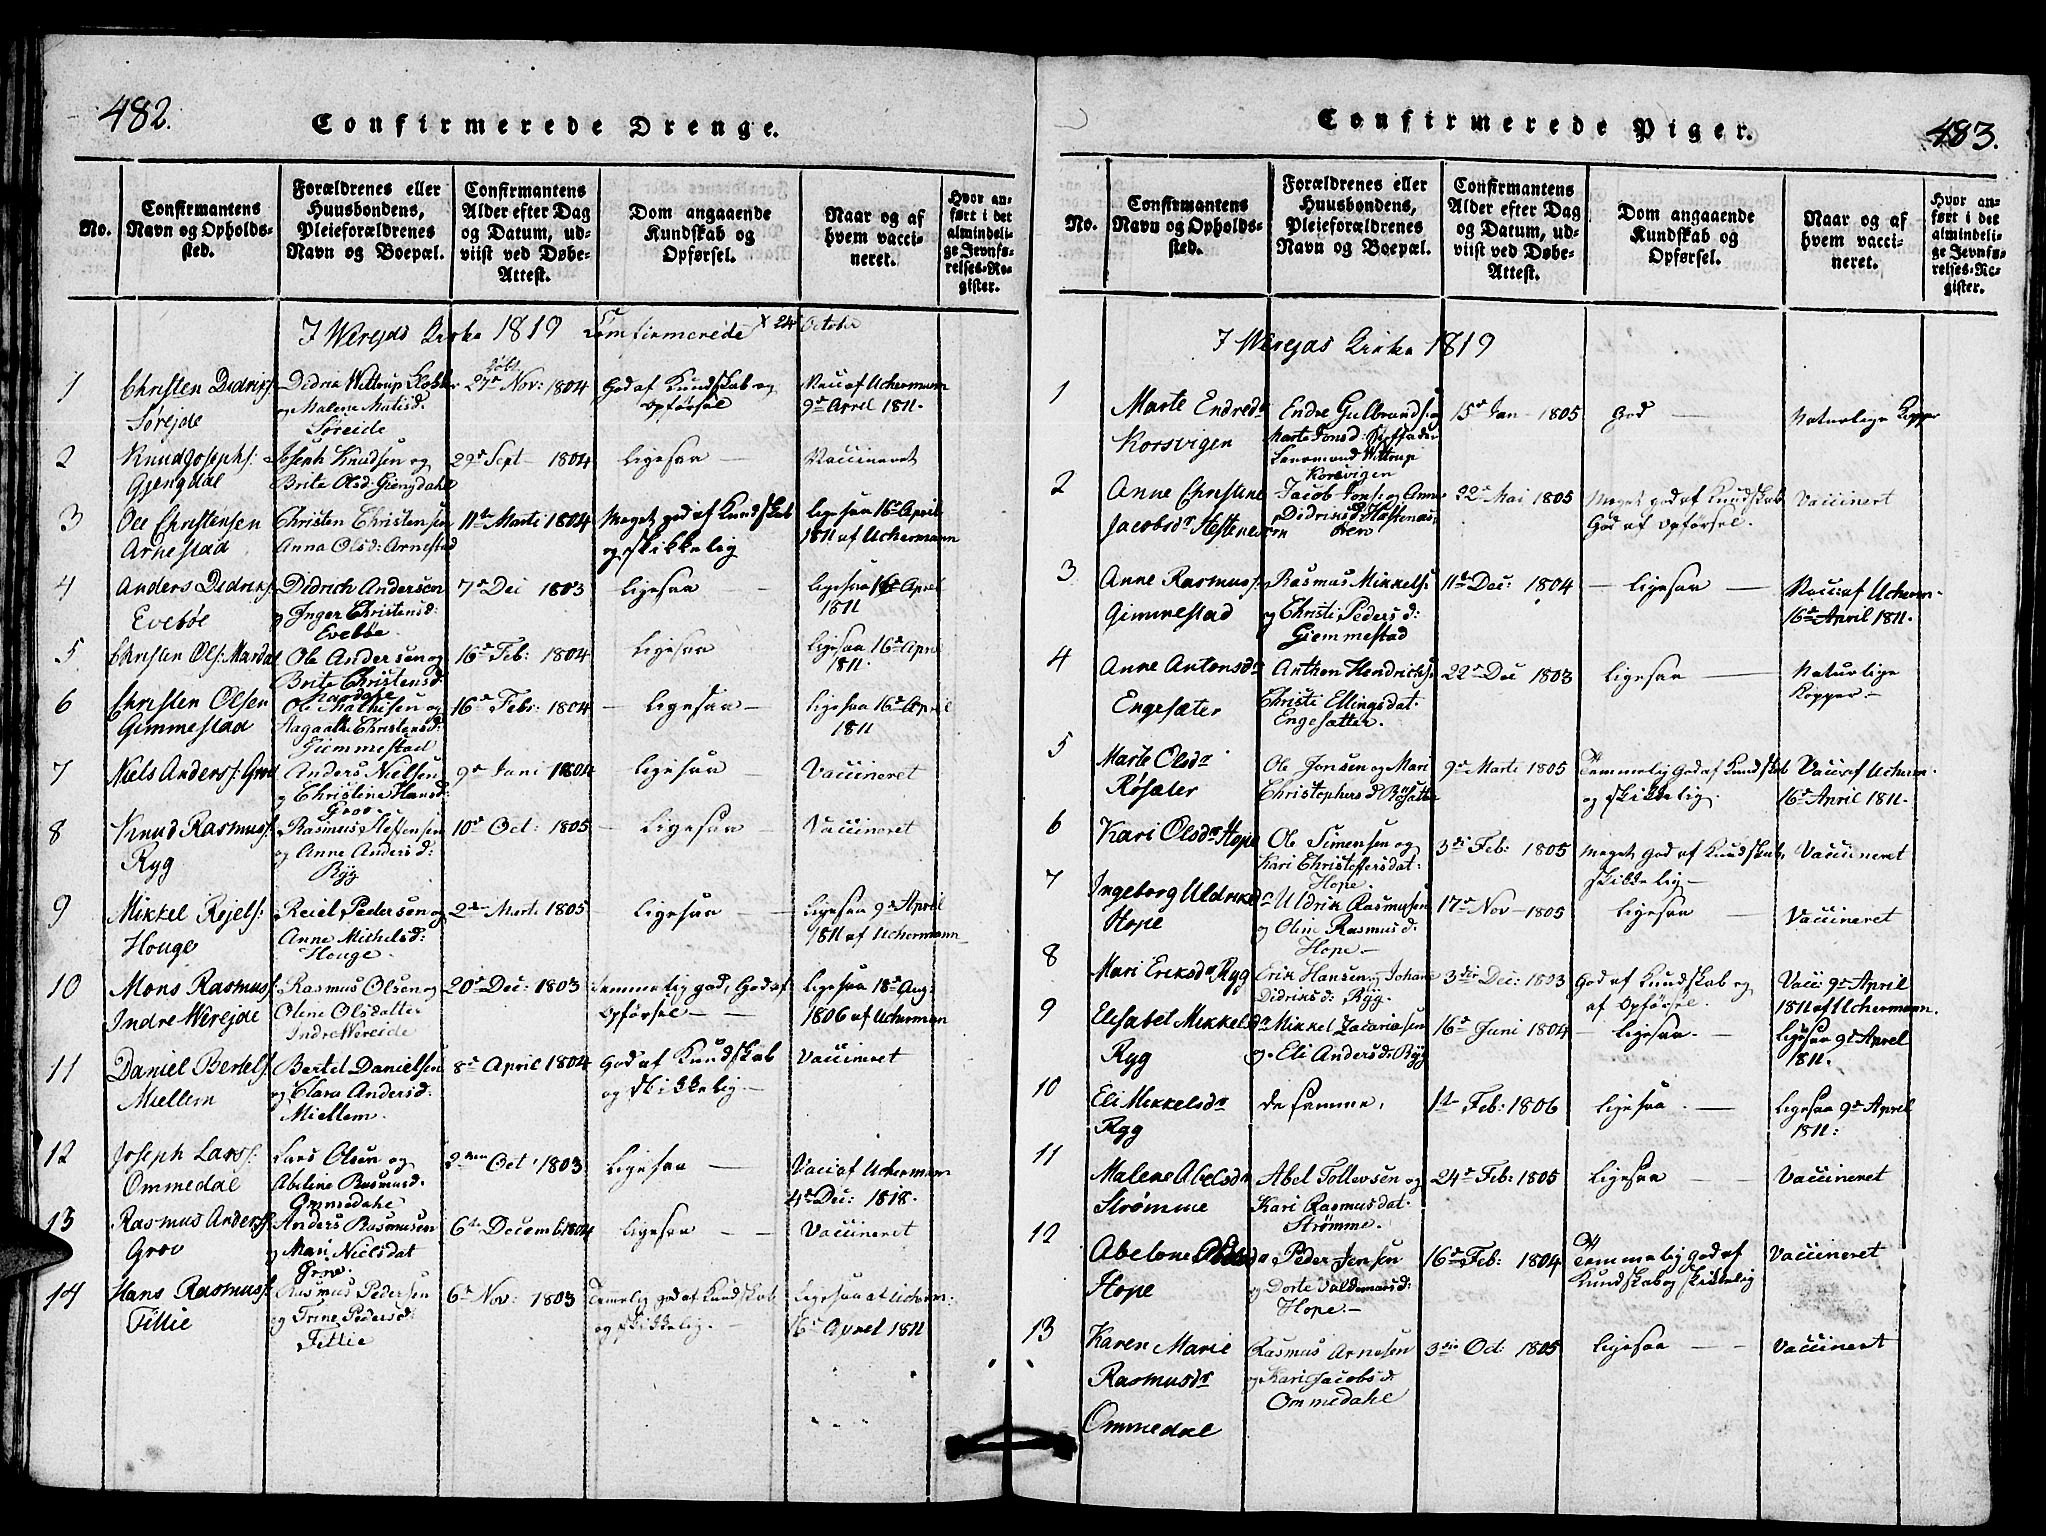 482.
Confirmerede Drenge.
No.
Confirmantens
Navn og Opholds-
sted.
Forældrenes eller
Huusbondens,
Pleieforældrenes
Navn og Boepæl.
Confirmantens
Alder efter Dag
og Datum, ud-
viist ved Døbe-
Attest.
Dom angaaende
Kundskab og
Opførsel.
Naar og af
hvem vacci-
neret.
Hvor an-
ført i det
almindeli-
ge Jevnfø-
relses-Re-
gister.
I Werejds Kirke 1819 Comfirmerede 24 October
1
Christen Didriks:
Sørejde
Didrik Wittrup
og Malene Matisd:
Søreide
døbt
27de Nov: 1804
God af Kundskab og
Opførsel
Vacc af Uchermann
9de April 1811.
2
Knud Josephs:
Gjengdal
Joseph Knudsen og
Brite Olsd: Giengdahl
29de Sept 1804
ligesaa
Vaccineret
3
Ole Christensen
Arnestad
Christen Christensen
Anna Olsd: Arnestad
11te Marti 1804
Meget god af Kundskab
og skikkelig
ligesaa 16de April
1811 af Uchermann
4
Anders Didriks:
Evebøe
Didrich Andersen
og Inger Christensd:
Evebøe
7de Dec 1803
ligesaa
ligesaa 16de April
1811
5
Christen Ols: Mardal
Ole Andersen og
Brite Christensd:
Mardahl
16de Feb: 1804
ligesaa
ligesaa 16de April
1811.
6
Christen Olsen
Gimmestad
Ole Mathisen og
Aagaathe Christensd:
Giemmestad
16de Febr: 1804
ligesaa
ligesaa 16de April
1811
7
Niels Anders: Grov
Anders Nielsen
og Christine Hansd:
Grov.
9de Juni 1804
ligesaa
Vaccineret
8
Knud Rasmuss:
Ryg
Rasmus Steffensen
og Anne Andersd:
Ryg
10de Oct: 1805
ligesaa
Vaccineret
9
Mikkel Rejels:
Houge
Reiel Pedersen og
Anne Michelsd:
Houge.
2den Marti 1805
ligesaa
ligesaa 9de April
1811 af Uchermann
10
Mons Rasmuss:
Indre Werejde
Rasmus Olsen og
Oline Olsdatter
Indre Wereide
20de Dec: 1803
Temmelig god, God af
Opførsel
ligesaa 18de Aug:
1806 af Ucherman
11
Daniel Bertels:
Miellem
Bertel Danielsen
og Clara Andersd:
Miellem.
8de April 1804
God af Kundskab
og skikkelig.
Vaccineret
12
Joseph Lars:
Ommedal
Lars Olsen og
Abeline Rasmusd:
Ommedahl
2den Oct 1803
ligesaa
Vacc af Ucherman
4de Dec: 1818.
13
Rasmus Anders:
Grov
Anders Rasmusen
og Mari Nielsdat
6te Decemb 1804
ligesaa
Vaccineret
14
Hans Rasmuss:
Tillie
Rasmus Pedersen
og Trine Pedersd:
Tillie
6te Nov: 1803
Temelig god af Kundskab
og skikkelig.
ligesaa af Ucherm:
16de April 1811
Confirmerede Piger.
483.
No.
Confirmantens
Navn og Opholds-
sted.
Forældrenes eller
Huusbondens,
Pleieforældrenes
Navn og Boepæl.
Confirmantens
Alder efter Dag
og Datum, ud-
viist ved Døbe-
Attest.
Dom angaaende
Kundskab og
Opførsel.
Naar og af
hvem vacci-
neret.
Hvor an-
ført i det
almindeli-
ge Jevnfø-
relses-Re-
gister.
I Werejds Kirke 1819
1
Marte Endredr
Korsvigen
Endre Gulbrands: og
Marte Jonsd: Stiffader
Lensmand Wittrup
Korsvigen
15de Jan 1805
God
Naturlige Kopper
2
Anne Christine
Jacobsdr Hestenesøren
Jacob Jons: og Anne
Didriksd: Hestenes
øren
22de Mai 1805
Meget god af Kundskab
God af Opførsel.
Vaccinert
3
Anne Rasmus:
Gimmestad
Rasmus Mikkels:
og Christi Pedersd:
Giemmestad
11te Dec: 1804
ligesaa
Vacc: af Ucherm.
16de April 1811.
4
Anne Antonsdr
Engesæter
Anthon Hendrichs:
Christi Ellingsdat:
Engesætter.
22de Dec 1803
ligesaa
Naturlige
Kopper
5
Marte Olsdr
Røsæter
Ole Jonsen og Mari
Christophersd Røsætter
9de Marti 1805
Temmelig God af Kundskab
og skikkelig.
Vacc af Ucherm.
16de April 1811.
6
Kari Olsdr Hope
Ole Simensen og
Kari Christoffersdat:
Hope.
3die Feb: 1805
Meget God af Kundskab,
skikkelig
Vaccineret
7
Ingeborg Uldriksdr
Hope
Uldrik Rasmusen
og Oline Rasmusd:
Hope.
17de Nov 1805
ligesaa
Vaccineret
8
Mari Eriksdr Ryg
Erik Hansen og Johane
Didriksd: Ryg.
3die Dec: 1803
God af Kundskab og
af Opførsel.
Vacc: 9de April
1811 af Uchermann.
9
Elisabet Mikkelsdr
Ryg
Mikkel Zacariasen
og Eli Andersd: Ryg
16de Juni 1804
ligesaa
ligesaa 9de April
1811.
10
Eli Mikkelsdr
Ryg
de samme.
1te Feb: 1806
ligesaa
ligesaa 9de April
1811:
11
Malene Abelsdr
Strømme
Abel Tollevsen og
Kari Rasmusdat:
Strømme.
24de Feb: 1805
ligesaa
Vaccineret
12
Abelone
Hope
Peder Jensen
og Dorte Valdemarsd:
Hope.
16de Feb: 1804
Temmelig god af
Kundskab og skikkelig
Vaccineret
13
Karen Marie
Rasmusdr
Ommedal
Rasmus Arnesen
og Kari Jacobsd:
Ommedahl
3die Oct: 1805
ligesaa
Vaccinert